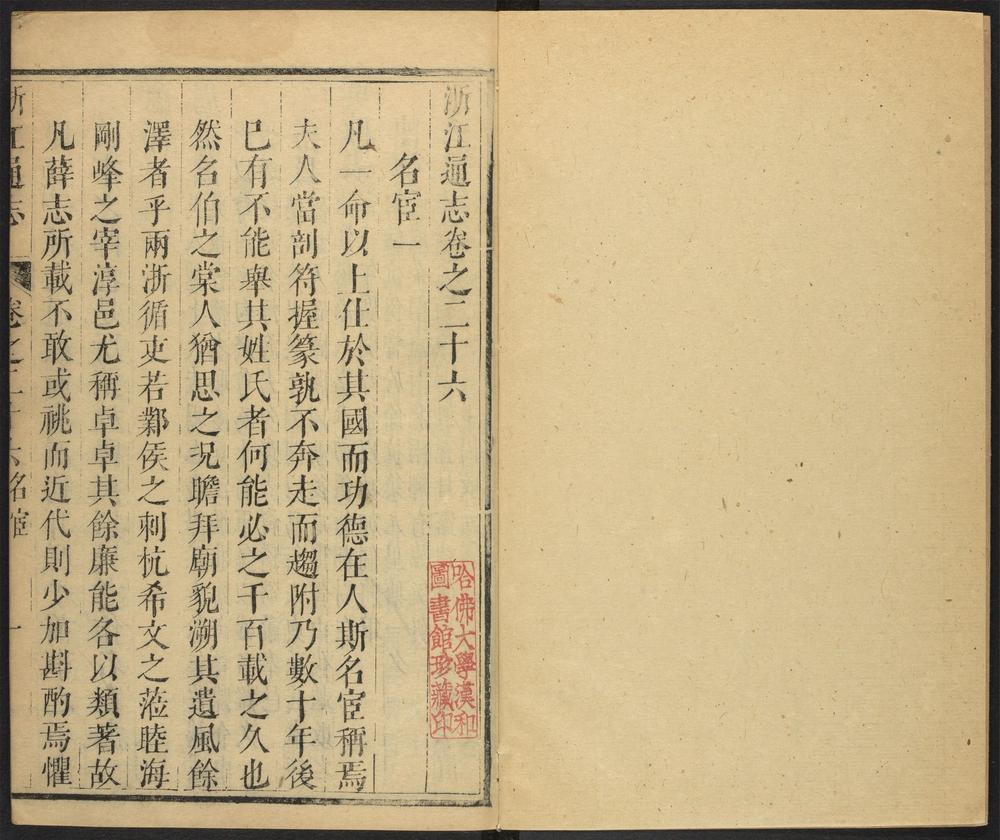 浙江通志卷之二十六
名宦一
凡一命以上仕於其國而功德在人斯名宦稱焉
夫人當剖符握篆孰不奔走而趨附乃數十年後
巳有不能舉其姓氏者何能必之千百載之久也
然名伯之棠人猶思之况瞻拜廟貌溯其遺風餘
澤者乎兩浙循吏若鄴侯之刺杭希文之蒞睦海
剛峰之宰淳邑尤稱卓卓其餘廉能各以類著故
凡薛志所載不敢或祧而近代則少加斟酌焉懼
浙江通志 卷之二十六名宦 一
哈佛大學漢和
圖書館珍藏印